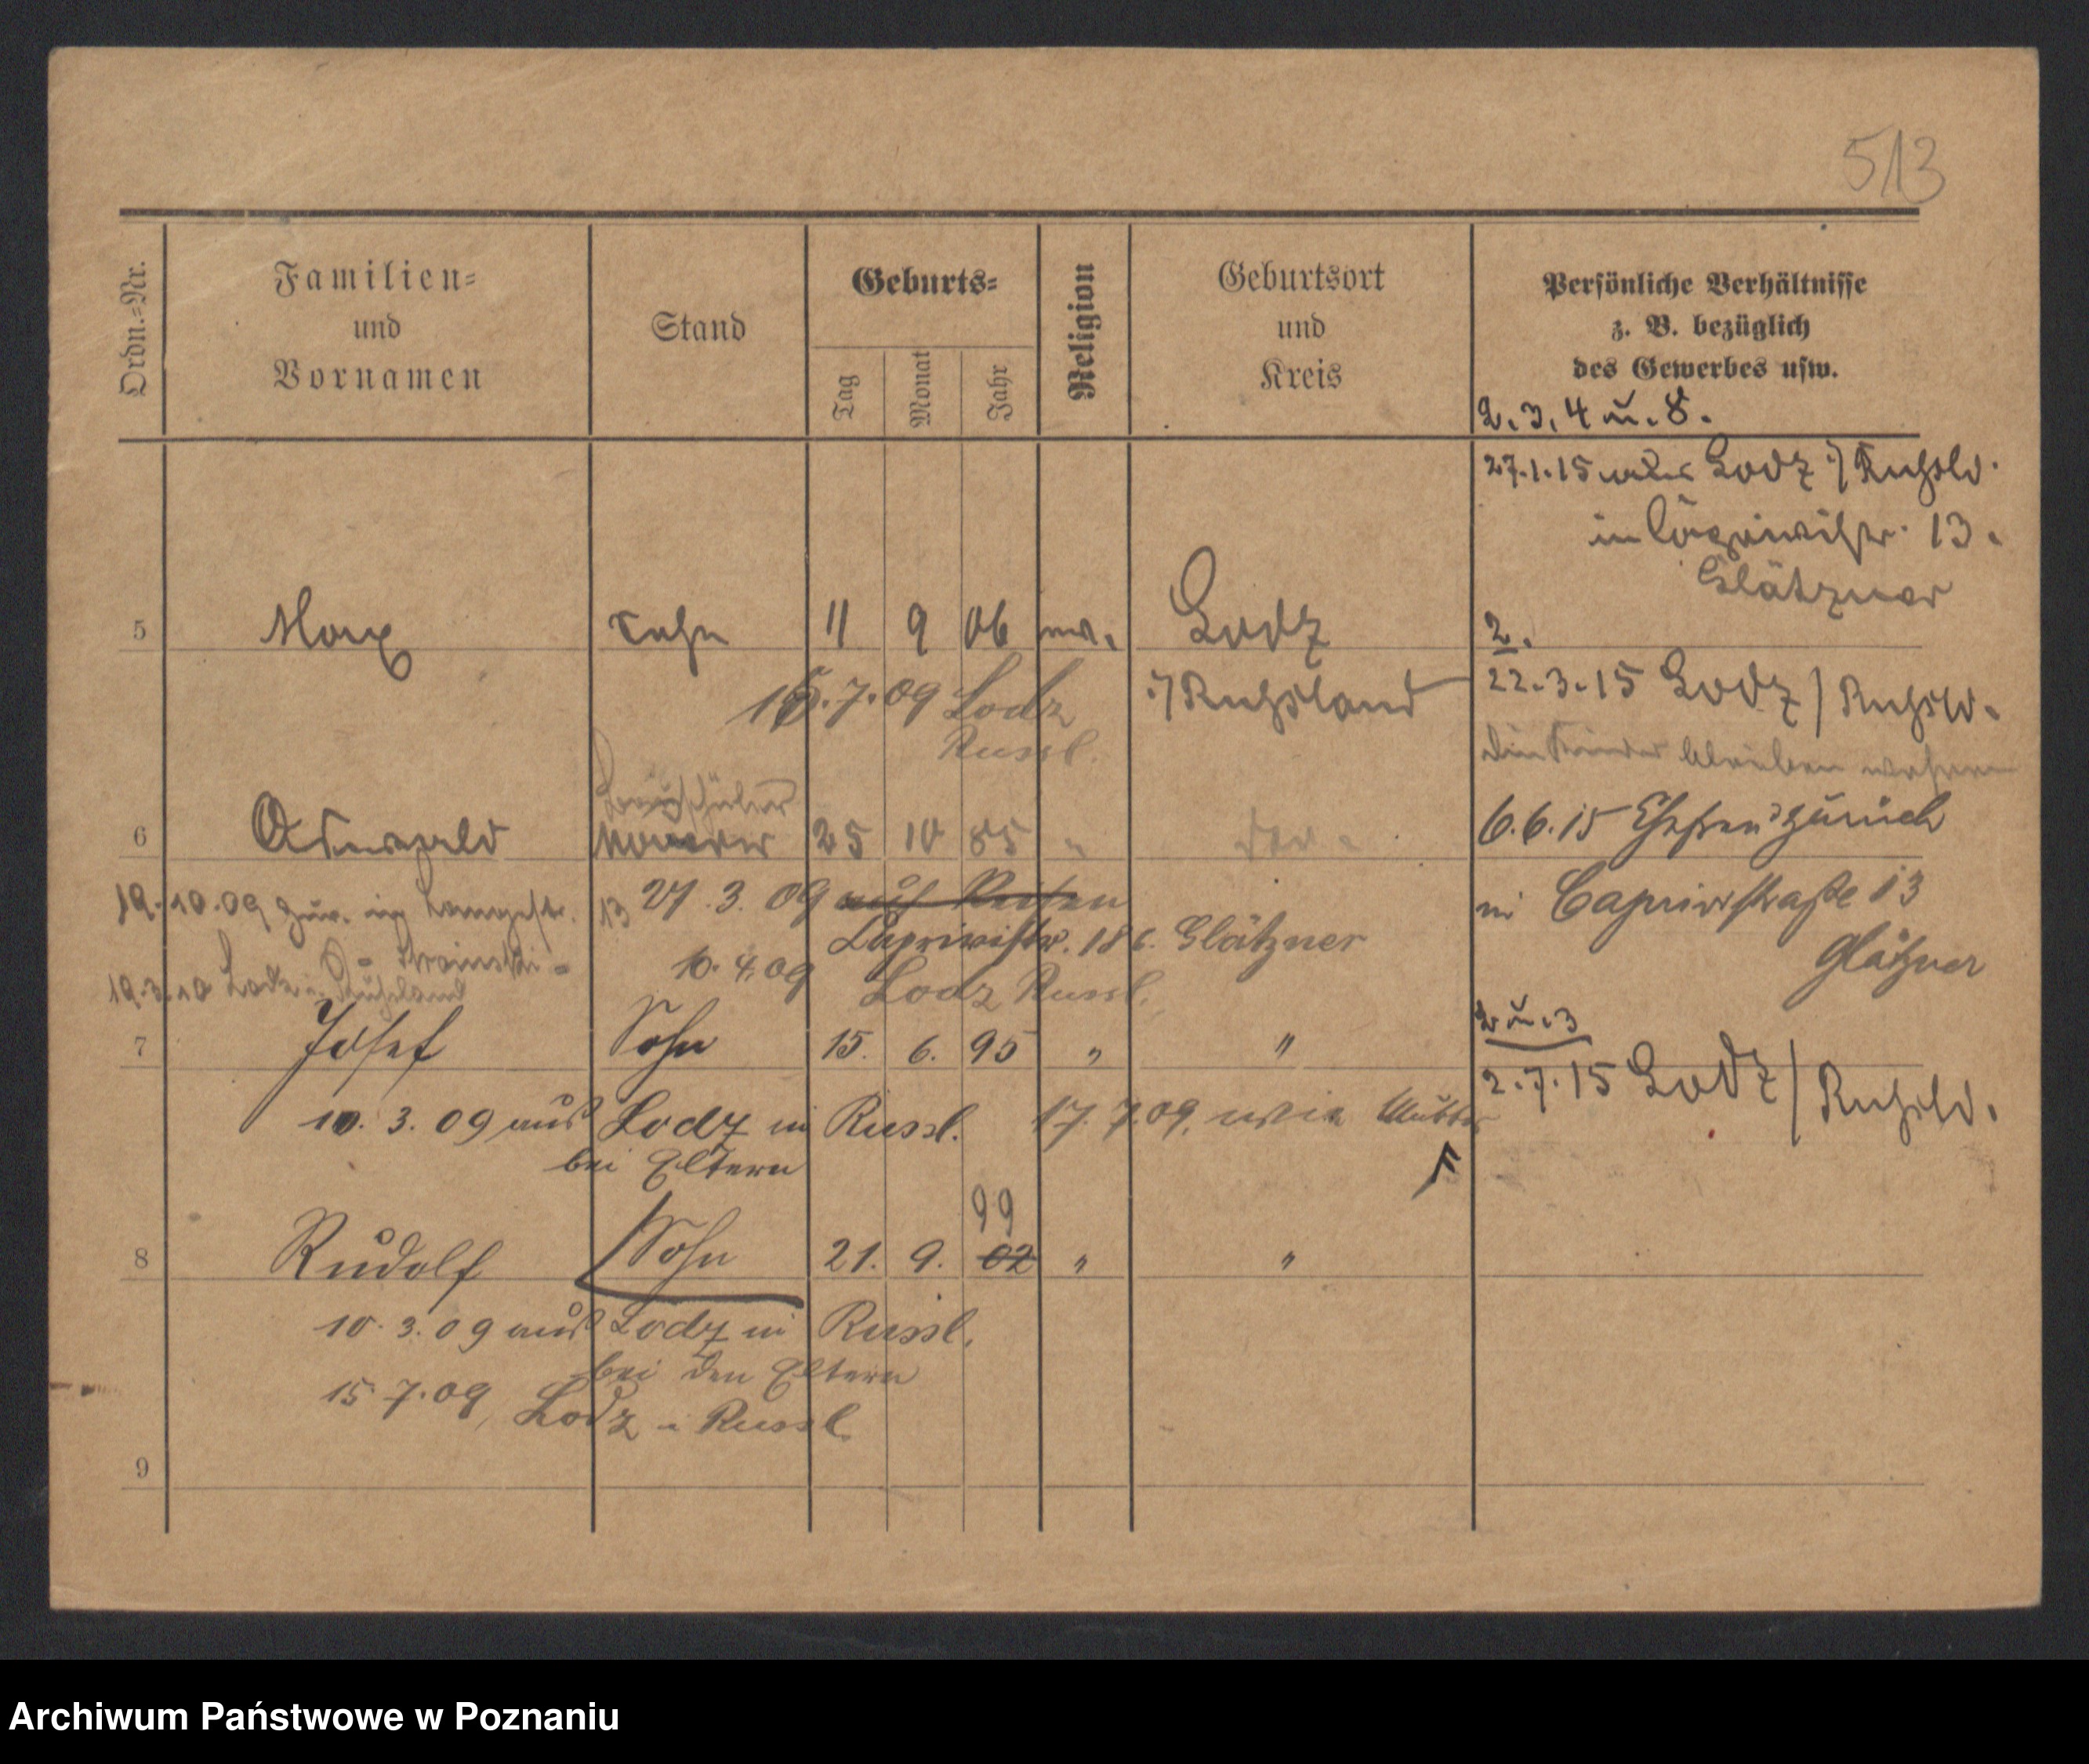 513
Ordn.-Nr.
Familien-
und
Vornamen
Stand
Geburts-
Tag
Monat
Jahr
Religion
Geburtsort
und
Kreis
Persönliche Verhältnisse
z. B. bezüglich
des Gewerbes usw.
2. 3. 4 u. 8.
27.1.15 Lodz i/ Rußld.
in Caprivistr. 13.
Glätzner
5 Max Sohn 11 9 06 Lodz
i/Russland
15.7.09 Lodz
Russl.
2.
22.3.15 Lodz / Rußld.
die Kinder bleiben
6 25 10 85 "
6.6.15 Ehefrau zurück
in Caprivistraße 13
Glätzner
19.10.09 zur. in Langestr. 13
19.3.10 Lodz i. Rußland
27.3.09 auf Reisen
Caprivistr. Glätzner
10.4.09 Lodz Russl.
7 Josef Sohn 15. 6. 95 " "
10.3.09 aus Lodz in Russl.
bei Eltern
17.7.09, wie Mutter
2 u. 3
2.7.15 Lodz / Rußld.
99
8 Rudolf Sohn 21. 9. 02 " "
10.3.09 aus Lodz in Russl.
bei den Eltern
15.7.09, Lodz i Russl.
9
Archiwum Państwowe w Poznaniu